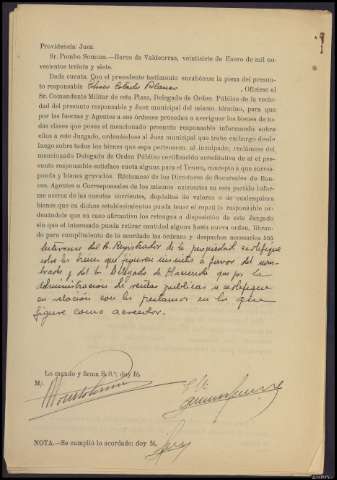 Providencia Juez
Sr. Pombo Somoza.—Barco de Valdeorras, veintisiete de Enero de mil no-
vecientos treinta y siete.
Dada cuenta. Con el precedente testimonio encabécese la pieza del presun-
to responsable Ulises Blanco . Ofíciese al
Sr. Comandante Militar de esta Plaza, Delegado de Orden Público de la vecin-
dad del presunto responsable y Juez municipal del mismo término, para que
por las fuerzas y Agentes a sus órdenes procedan a averiguar los bienes de to-
das clases que posea el mencionado presunto responsable informando sobre
ellos a este Juzgado, ordenándose al Juez municipal que trabe embargo desde
luego sobre todos los bienes que sepa pertenecen al inculpado; recíbanse del
mencionado Delegado de Orden Público certificación acreditativa de si el pre-
sunto responsable satisface cuota alguna para el Tesoro, concepto a que corres-
ponda y bienes gravados. Diríjanse de los Directores de Sucursales de Ban-
cos, Agentes o Corresponsales de los mismos existentes en este partido infor-
mación acerca de las cuentas corrientes, depósitos de valores o de cualesquiera
bienes que en dichos establecimientos pueda tener el repetido responsable or-
denándole que en caso afirmativo los retengan a disposición de este Juzgado
sin que el interesado pueda retirar cantidad alguna hasta nueva orden, librán-
do para cumplimiento de lo acordado las órdenes y despachos necesarios
del Sr. Registrador de la propiedad certifique
sobre los bienes que figuren inscritos a favor del nom-
brado y del Sr. Delegado de Hacienda que por la
Administración de rentas públicas se certifique
en relación con los préstamos en los que
figure como acreedor.
Lo mandó y firma S.S.ª; doy fe.
NOTA.—Se cumplió lo acordado; doy fe.